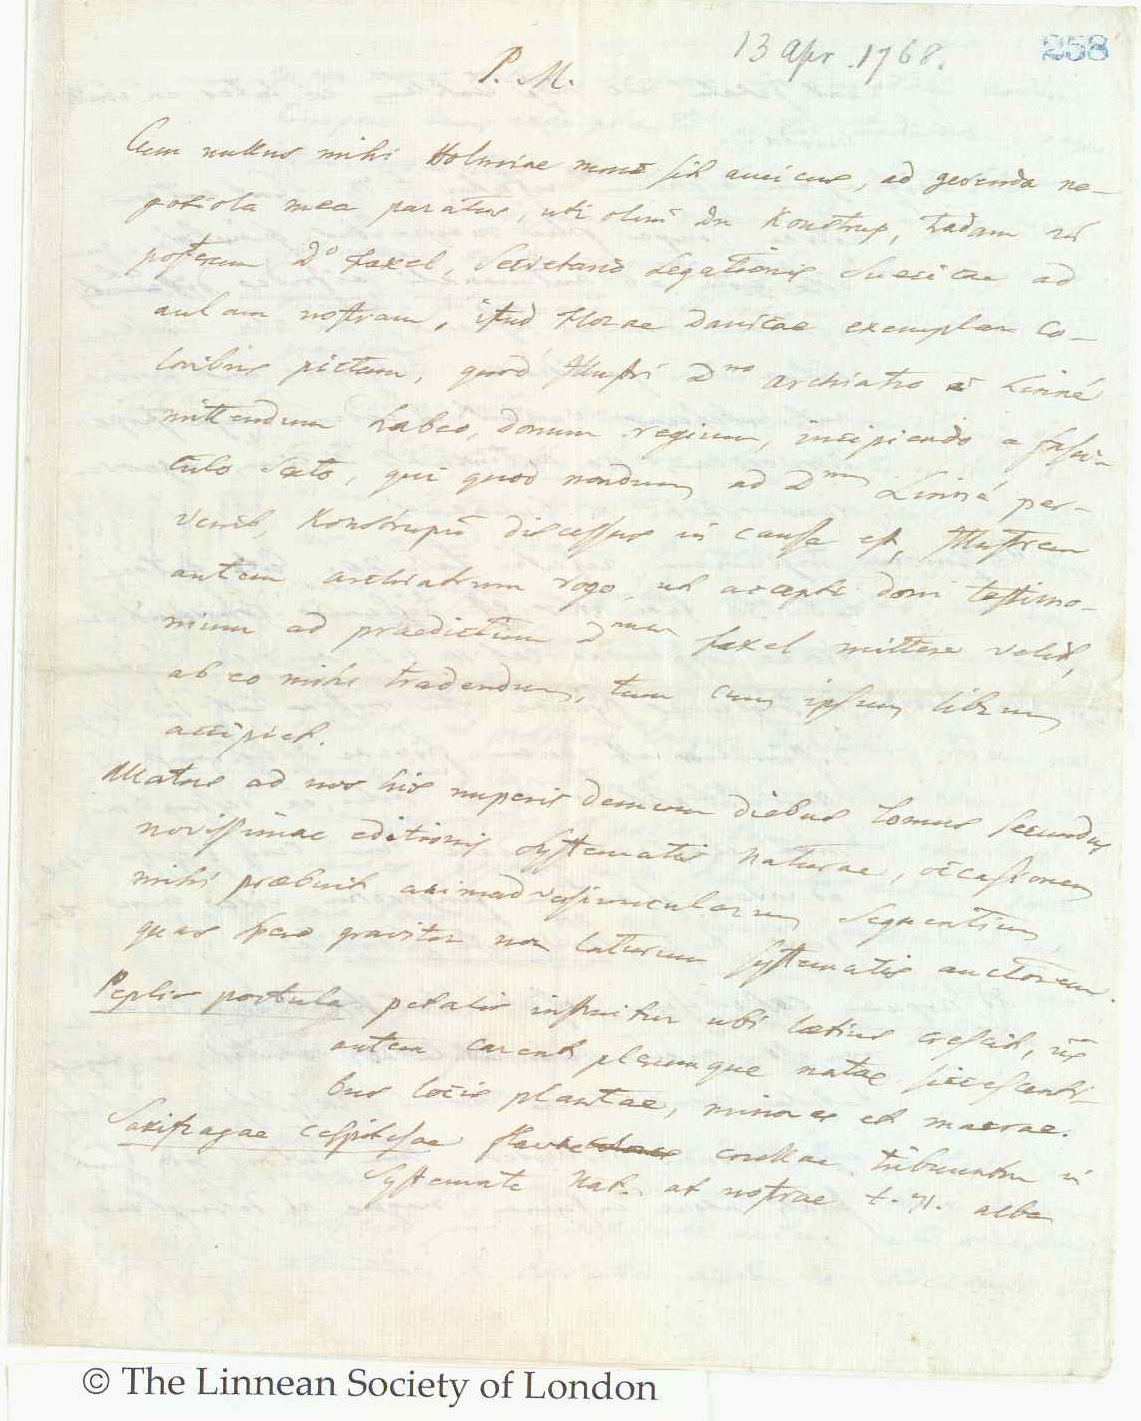 13 Apr. 1768.
258
P. M.
Cum nullus mihi Holmiae nunc sit amicus, ad gerenda ne-
gotiola mea paratus, uti olim Dn Konstrup, tradam in
posterum Do Faxel, Secretario Legationis Suecicae ad
aulam nostram, istud Florae Danicae exemplar co-
loribus pictum, quod Illustri Dno Archiatro a Linné
mittendum habeo, donum regium, incipiendo a fasci-
culo sexto, qui quod nondum ad Dnum Linné per-
venit, Konstrupii discessus in causa est, Illustrem
autem archiatrum rogo, ut accepti doni testimo-
nium ad praedictum Dnum Faxel mittere velit,
ab eo mihi tradendum, tum cum ipsum librum
accipiet.
Allatus ad nos his nuperis demum diebus tomus secundus
novissimae editionis Systematis Naturae, occasionem
mihi præbuit animadversiuncularum sequentium
quas spero graviter non laturum systematis auctorem.
Peplis portula petalis instruitur ubi lætius crescit, iis
autem carent plerumque natae siccescenti-
bus locis plantae, minores et macrae.
Saxifragae cespitosae flavae corollae tribuuntur in
Systemate Nat. at nostrae t. 71. albae
© The Linnean Society of London